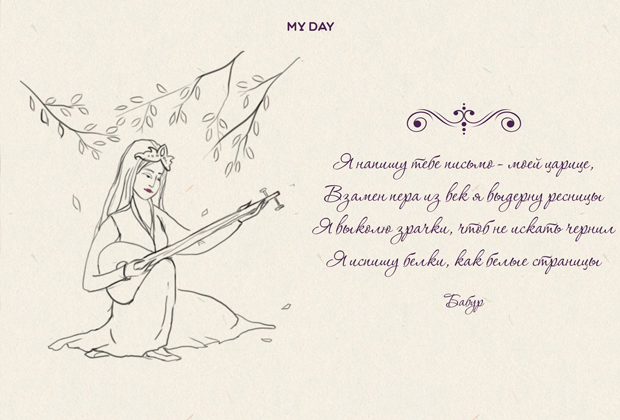 MY DAY
Я напишу тебе письмо - моей царице,
Взамен пера из век я выдерну ресницы
Я выколю зрачки, чтоб не искать чернил
Я испишу белки, как белые страницы
Бабур